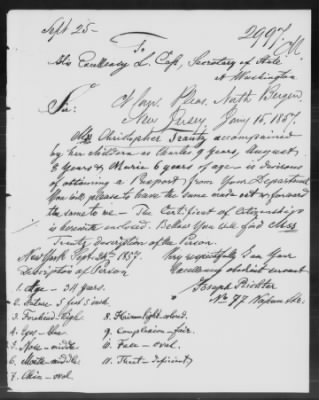 Sept 25 -
29978
To
His Excellency L. Cass, Secretary of State
at Washington
Sir:
Pleas. North Bergen
New Jersey, Jany 15, 1857.
Mrs Christopher Trauty accompanied
by her children as Charles 9 years, August
8 years & Maria 6 years of age - is desirous
of obtaining a Passport from Your Department
You will please to have the same made out & forward
the same to me - The Certificate of Citizenship
is herewith enclosed. Below You will find Mrs
Trauty description of the Person.
New York Sept. 24th 1857. Very respectfully I am Your
Description of Person most obedient servant
1. Age - 34 Years. Joseph Richter
2. Stature 5 feet 5 inch. No 77 Nassau Str.
3. Forehead - high 8. Hair - light colored.
4. Eyes - blue 9. Complexion - fair.
5. Nose - middle 10. Face - oval.
6. Mouth - middle 11. Theet - deficient
7. Chin - oval